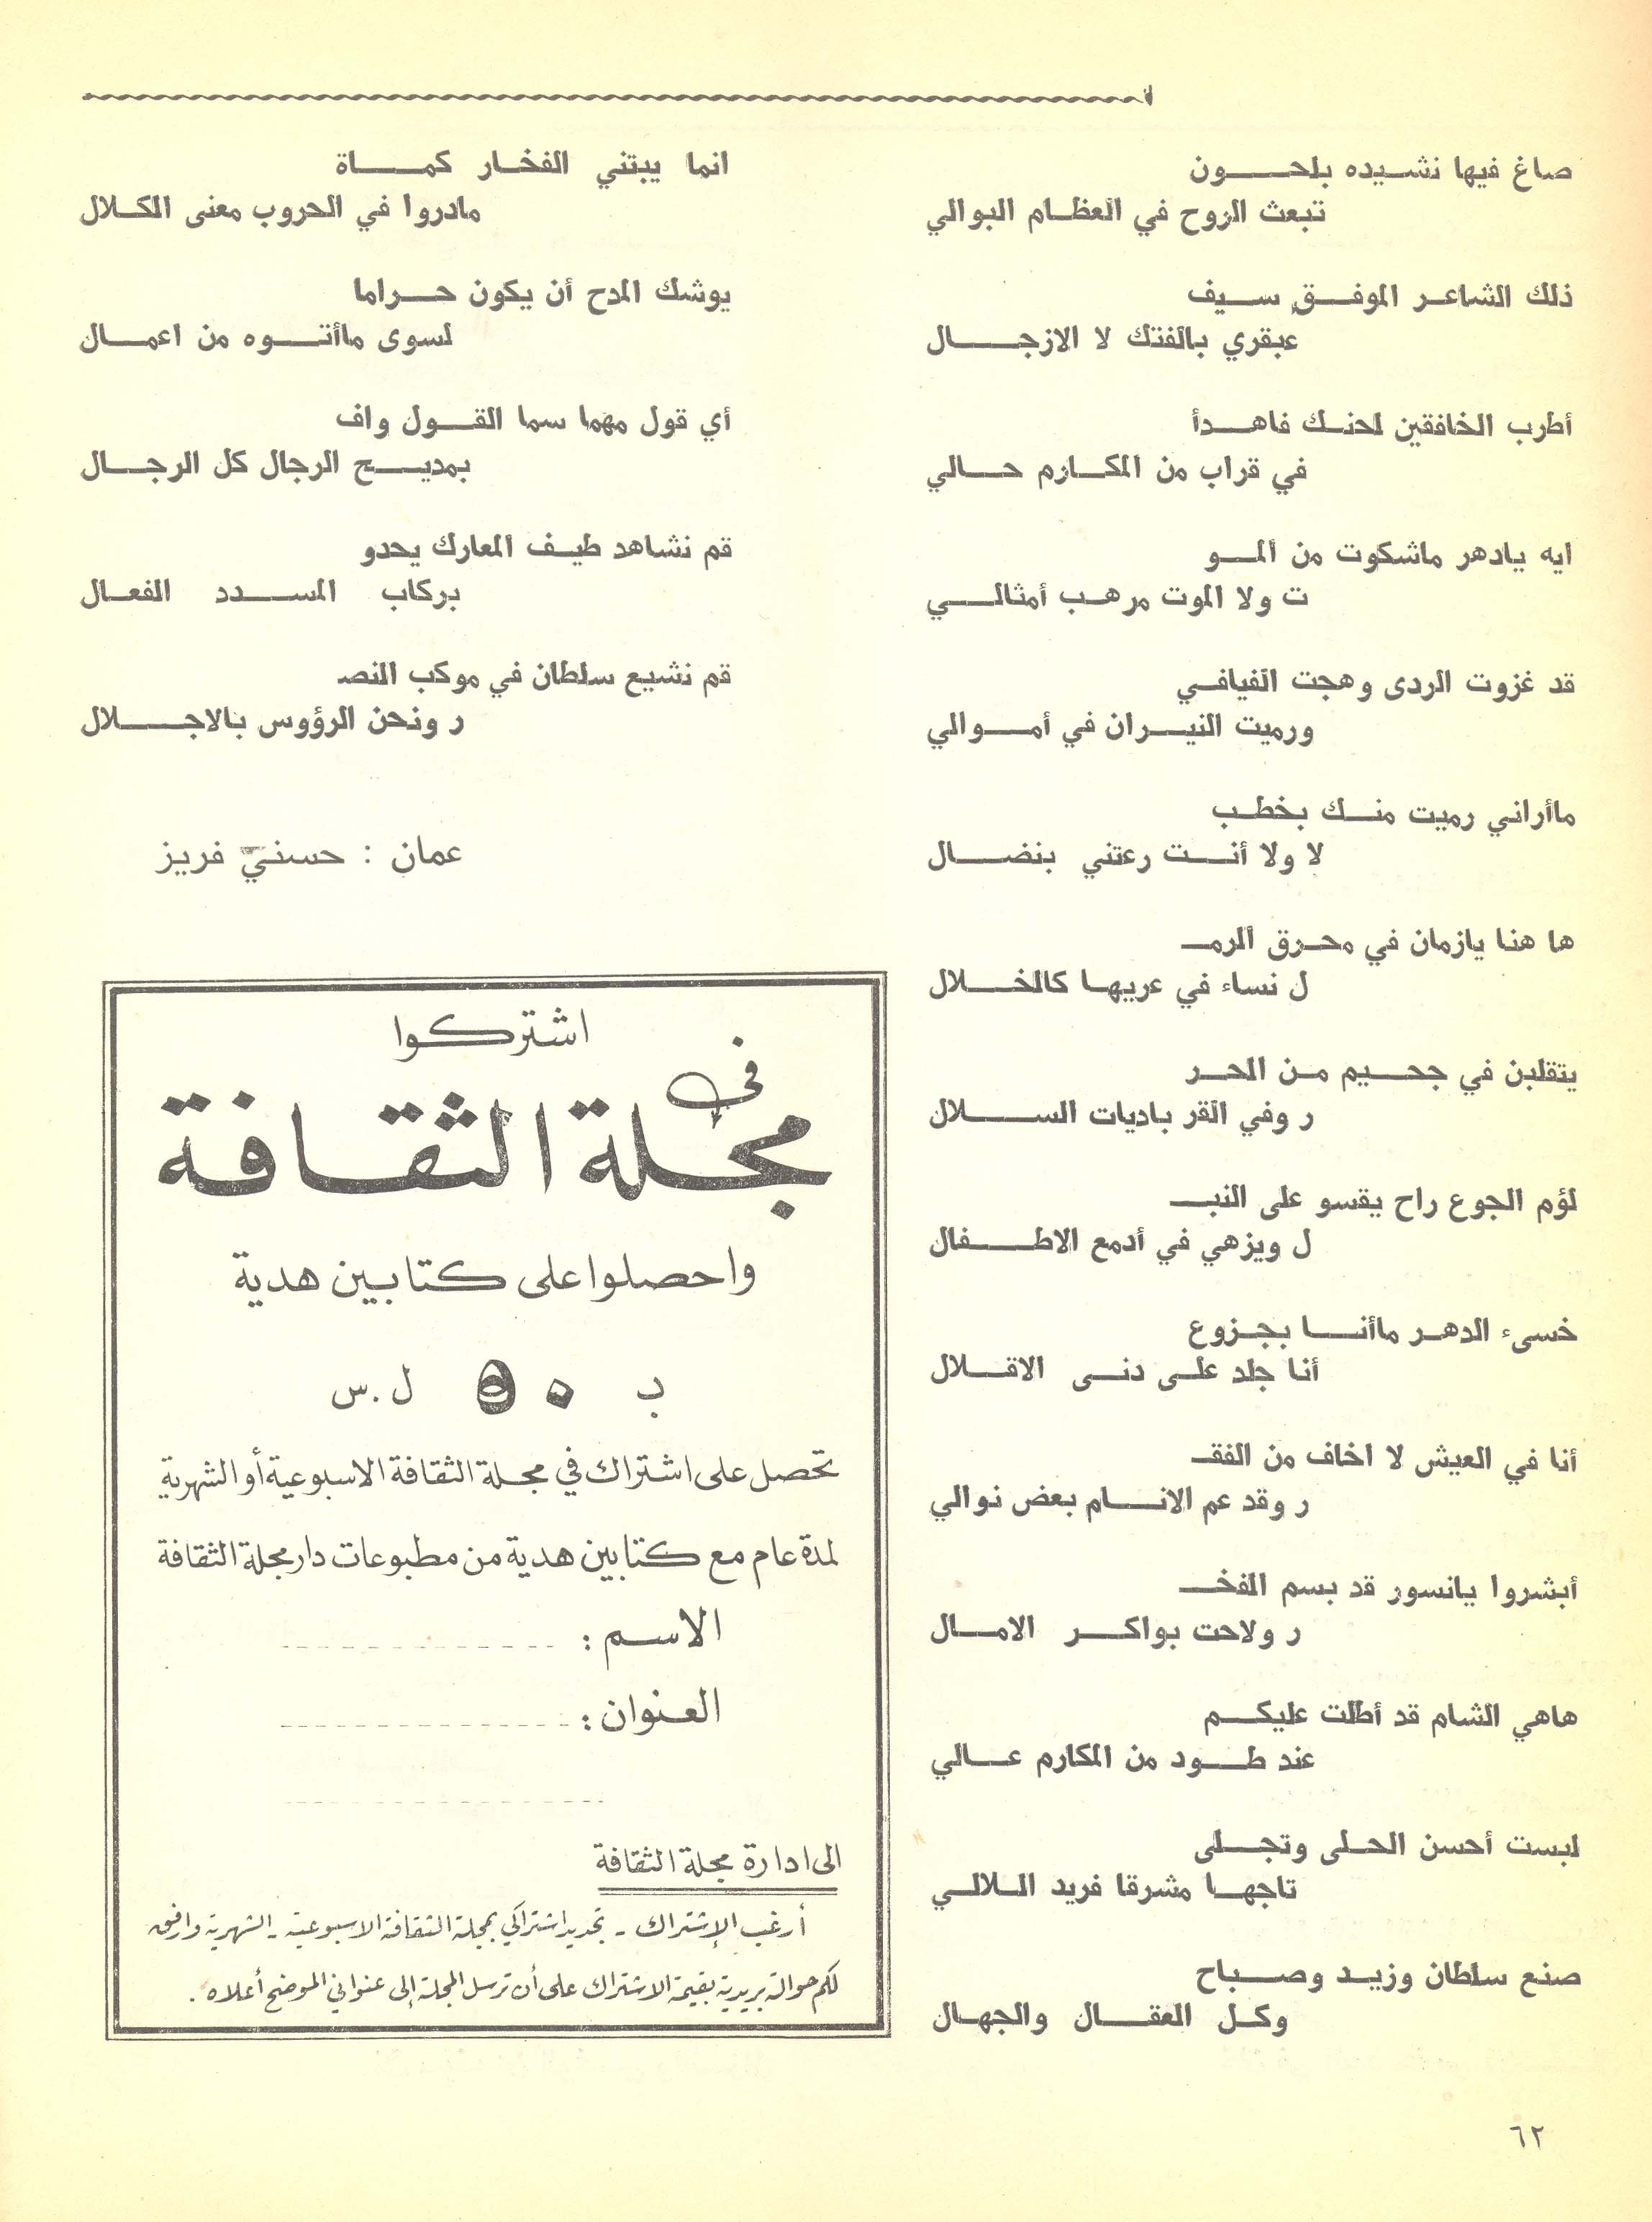 صاغ فيها نشيده بلحون
تبعث الروح في العظام البوالي
ذلك الشاعر الموفق سيف
عبقري بالفتك لا الازجال
أطرب الخافقين لحنك فاهدأ
في قراب من المكارم حالي
ايه يادهر ماشكوت من المو
ت ولا الموت مرهب أمثالي
قد غزوت الردى وهجت الفيافي
ورميت النيران في أموالي
ماأراني رميت منك بخطب
لا ولا أنت رعتني بنضال
ها هنا يازمان في محرق الرمـ
ل نساء في عريها كالخلال
يتقلبن في جحيم من الحر
ر وفي القر باديات السلال
لؤم الجوع راح يقسو على النبـ
ل ويزهي في أدمع الاطفال
خسىء الدهر ماأنا بجزوع
أنا جلد على دنى الاقلال
أنا في العيش لا اخاف من الفقـ
ر وقد عم الانام بعض نوالي
أبشروا يانسور قد بسم الفخـ
ر ولاحت بواكر الامال
هاهي الشام قد أطلت عليكم
عند طود من المكارم عالي
لبست أحسن الحلى وتجلى
تاجها مشرقا فريد اللالي
صنع سلطان وزيد وصباح
وكل العقال والجهال
انما يبتني الفخار كماة
مادروا في الحروب معنى الكلال
يوشك المدح أن يكون حراما
لسوى ماأتوه من اعمال
أي قول مهما سما القول واف
بمديح الرجال كل الرجال
قم نشاهد طيف المعارك يحدو
بركاب المسدد الفعال
قم نشيع سلطان في موكب النصـ
ر ونحن الرؤوس بالاجلال
عمان : حسني فريز
اشتركوا
في
مجلة الثقافة
واحصلوا على كتابين هدية
بـ ٥٠ ل.س
تحصل على اشتراك في مجلة الثقافة الاسبوعية أو الشهرية
لمدة عام مع كتابين هدية من مطبوعات دار مجلة الثقافة
الاسم :
العنوان :
الى ادارة مجلة الثقافة
أرغب الإشتراك - تجديد اشتراكي بمجلة الثقافة الاسبوعية - الشهرية وارفق
لكم حوالة بريدية بقيمة الاشتراك على أن ترسل المجلة إلى عنواني الموضح أعلاه .
٦٢